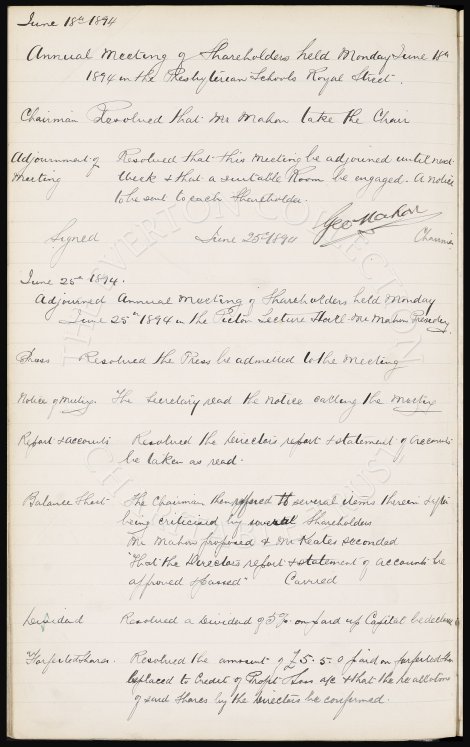 June 18th 1894
Annual Meeting of Shareholders held Monday June 18th
1894 in the Presbyterian Schools Royal Street.
Chairman Resolved that Mr Mahon take the Chair
Adjournment of Resolved that this Meeting be adjourned until next
Meeting Week & that a suitable Room be engaged. A notice
to be sent to each Shareholder.
Signed June 25th 1894 Geo Mahon Chairman
June 25th 1894.
Adjourned Annual Meeting of Shareholders held Monday
June 25th 1894 in the Picton Lecture Hall. Mr Mahon Presiding.
Press Resolved the Press be admitted to the Meeting
Notice of Meeting. The Secretary read the notice calling the Meeting
Report & accounts Resolved the Directors report & statement of accounts
be taken as read.
Balance Sheet The Chairman then referred to several items therein & after
being criticised by several Shareholders
Mr Mahon proposed & Mr Keates seconded
"That the Directors report & statement of accounts be
approved & passed" Carried
Dividend Resolved a Dividend of 5% on paid up Capital be declared
Forfeited Shares. Resolved the amount of £5.5.0 paid on forfeited Shares
be placed to Credit of Profit & Loss a/c & that the reallotment
of said Shares by the Directors be confirmed.
THE EVERTON COLLECTION
CHARITABLE TRUST